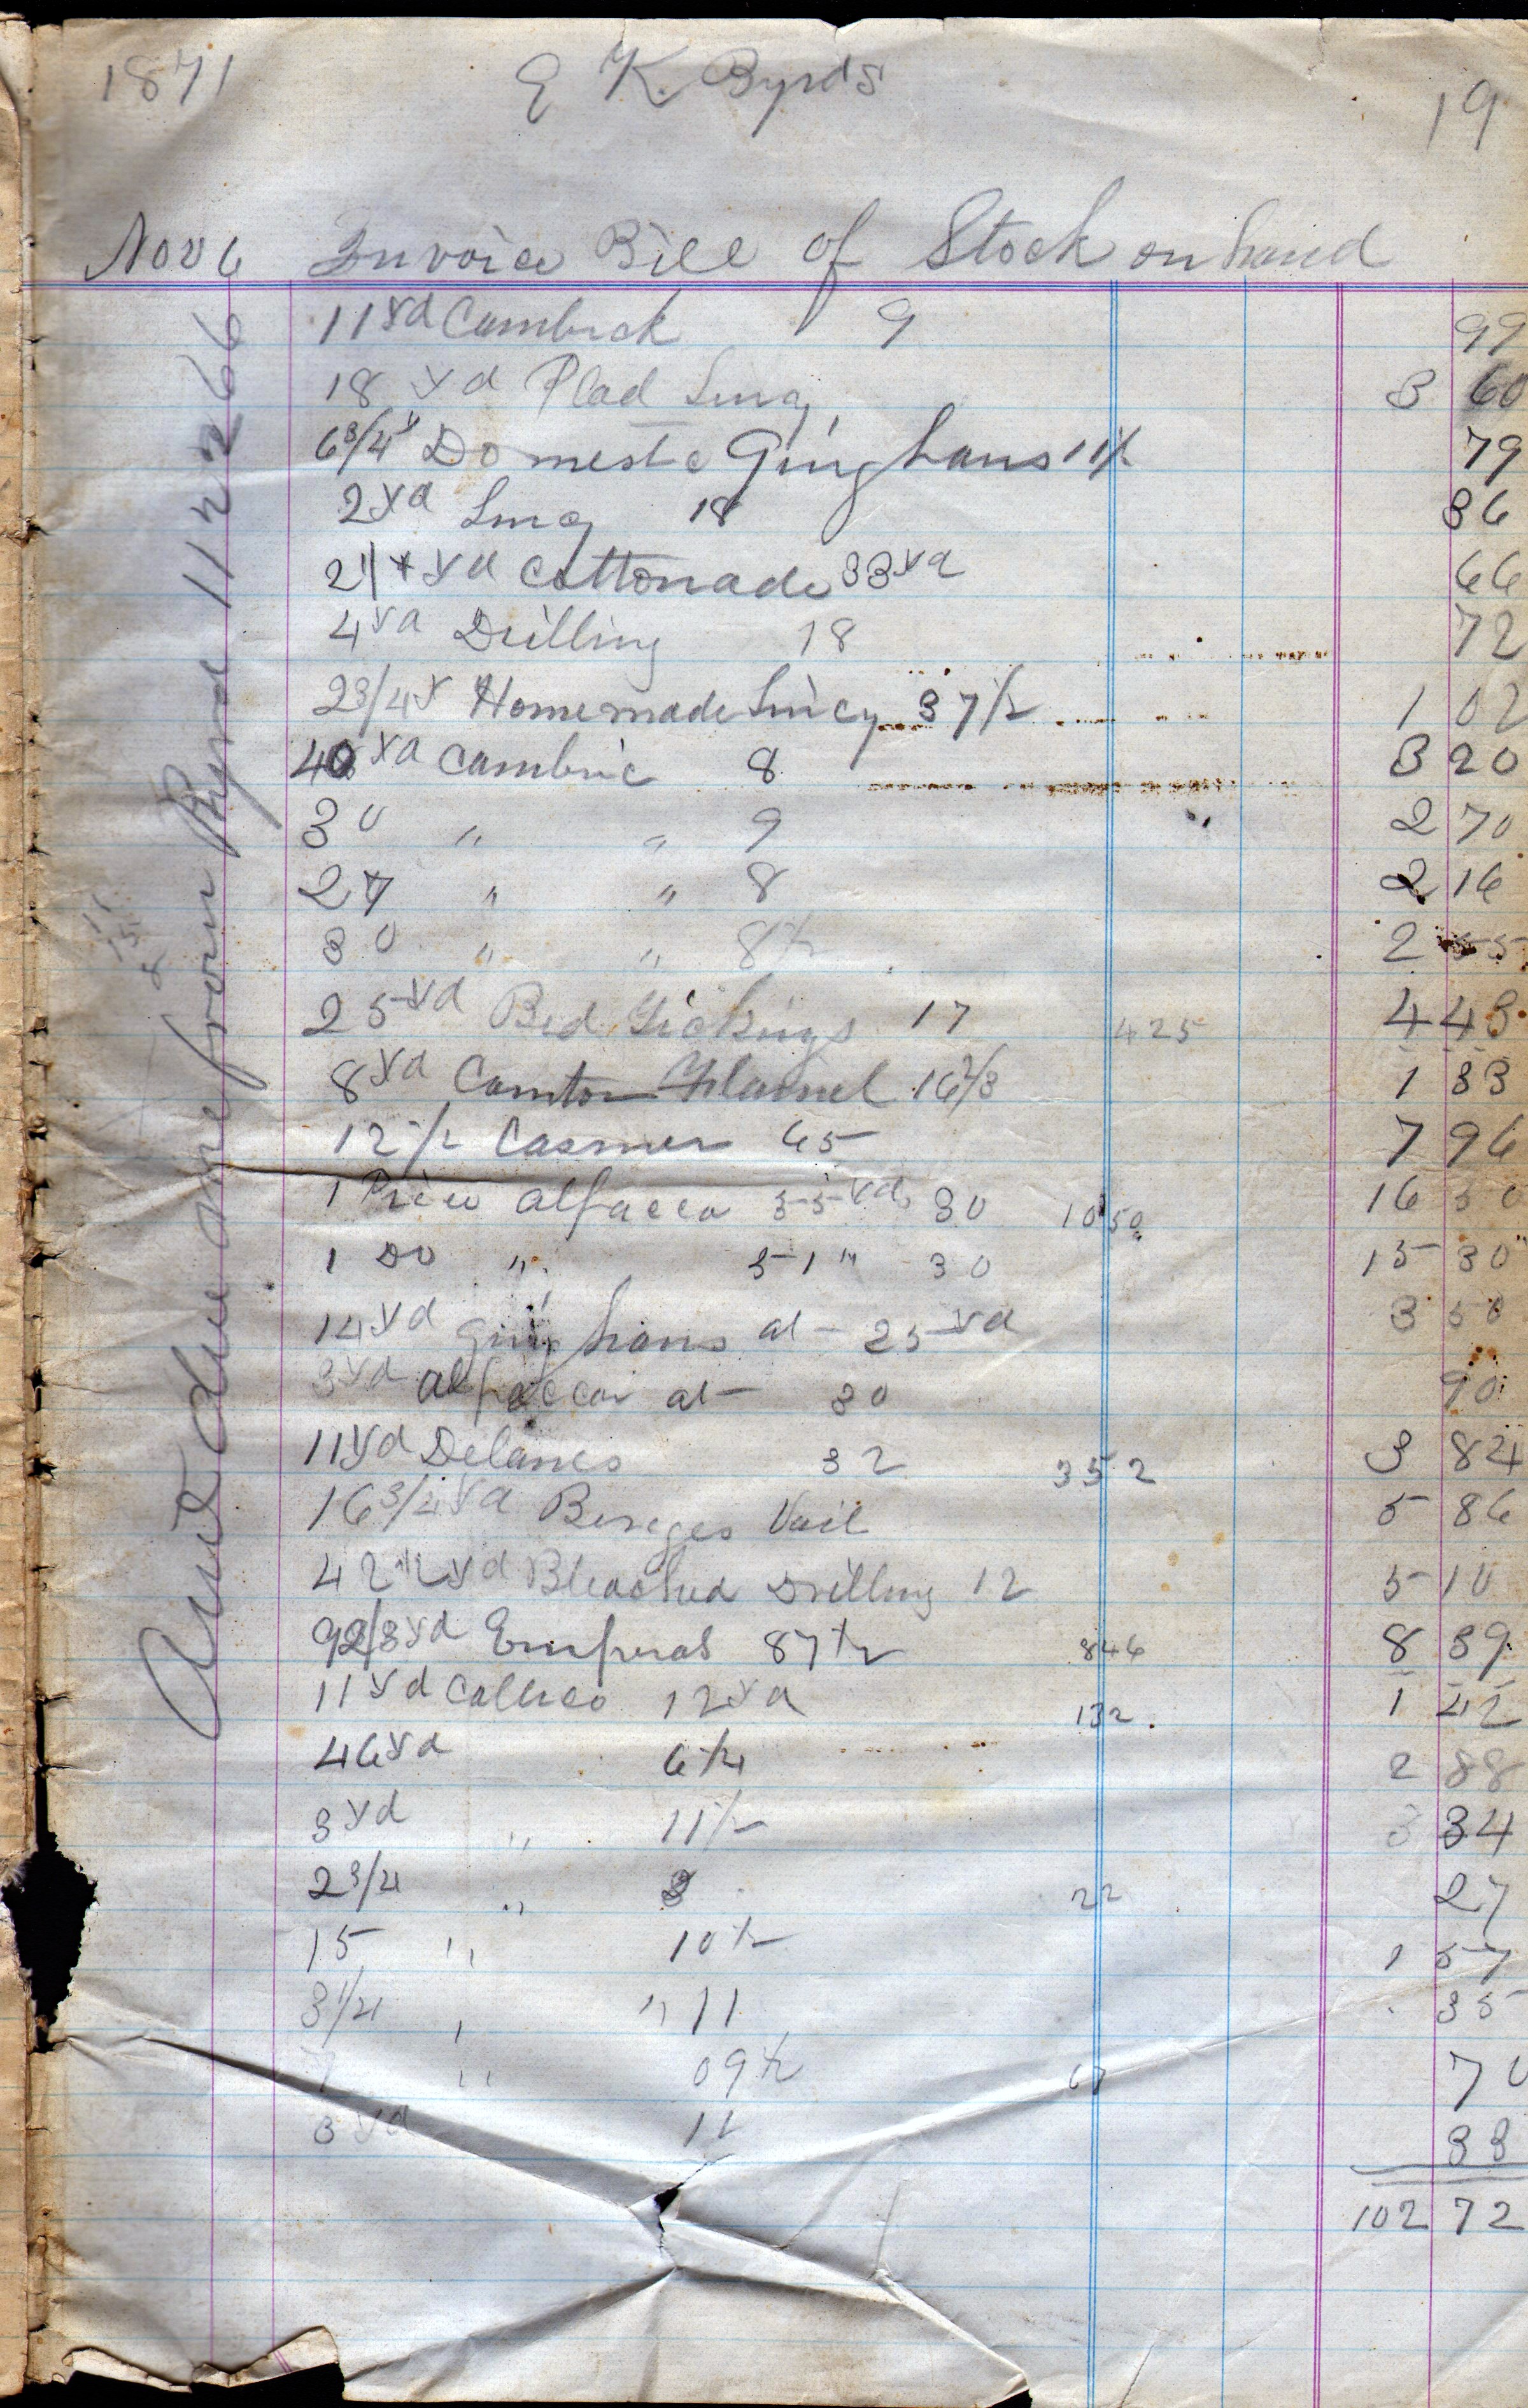 1871 E K. Byrds 19
Nov 6 Invoice Bill of Stock on hand
11 yd Cambrick 9 99
18 yd Plad Linsy 3 60
6 3/4 y Domestic Ginghans 11 1/2 79
2 yd Linsy 18 36
2 yd Cottonade 33 yd 66
4 yd Drilling 18 72
2 3/4 y Homemade Lincy 37 1/2 1 02
40 yd Cambric 8 3 20
30 " " 9 2 70
27 " " 8 2 16
30 " " 8 1/2 2 55
25 yd Bed Tickings 17 425 4 43
8 yd Canton Flannel 16 2/3 1 33
12 1/2 Casmer 65 7 96
1 Piece alpacca 55 yds 30 10 50 16 50
1 Do " 51 " 30 15 30
14 yd ginghans at 25 yd 3 50
3 yd alpaccar at 30 90
11 yd Delanes 32 352 3 84
16 3/4 yd Bereges Vail 5 86
42 1/2 yd Bleached Drilling 12 5 10
9 2/3 yd Empress 87 1/2 846 8 39
11 yd Callico 12 yd 132 1 42
46 yd 6 1/4 2 88
3 yd " 11 1/2 34
2 3/4 " 22 27
15 " 10 1/2 1 57
3 1/4 " " 11 35
7 " 09 1/2 67 70
3 yd 11 33
102 72
Amt due me from Byrd 112 66